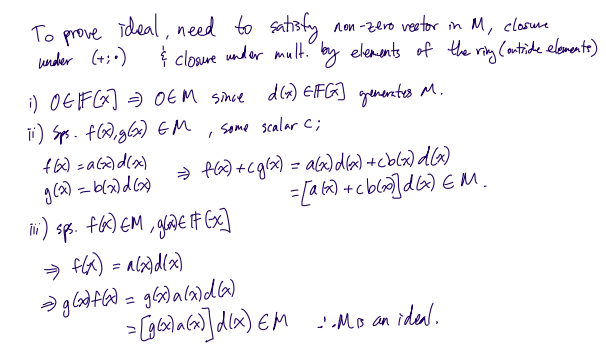 To prove ideal, need to satisfy non-zero vector in M, closure
under (+;•) & closure under mult. by elements of the ring (outside elements)
i) 0∈𝔽[x] ⇒ 0∈M since d(x)∈𝔽[x] generates M.
ii) Sps. f(x),g(x) ∈M , some scalar c;
f(x)=a(x)d(x) ⇒ f(x)+cg(x) = a(x)d(x)+cb(x)d(x)
g(x)=b(x)d(x) =[a(x)+cb(x)]d(x) ∈ M.
iii) sps. f(x)∈M ,g(x)∈𝔽[x]
⇒ f(x) = a(x)d(x)
⇒ g(x)f(x) = g(x)a(x)d(x)
=[g(x)a(x)]d(x) ∈M ∴ M is an ideal.